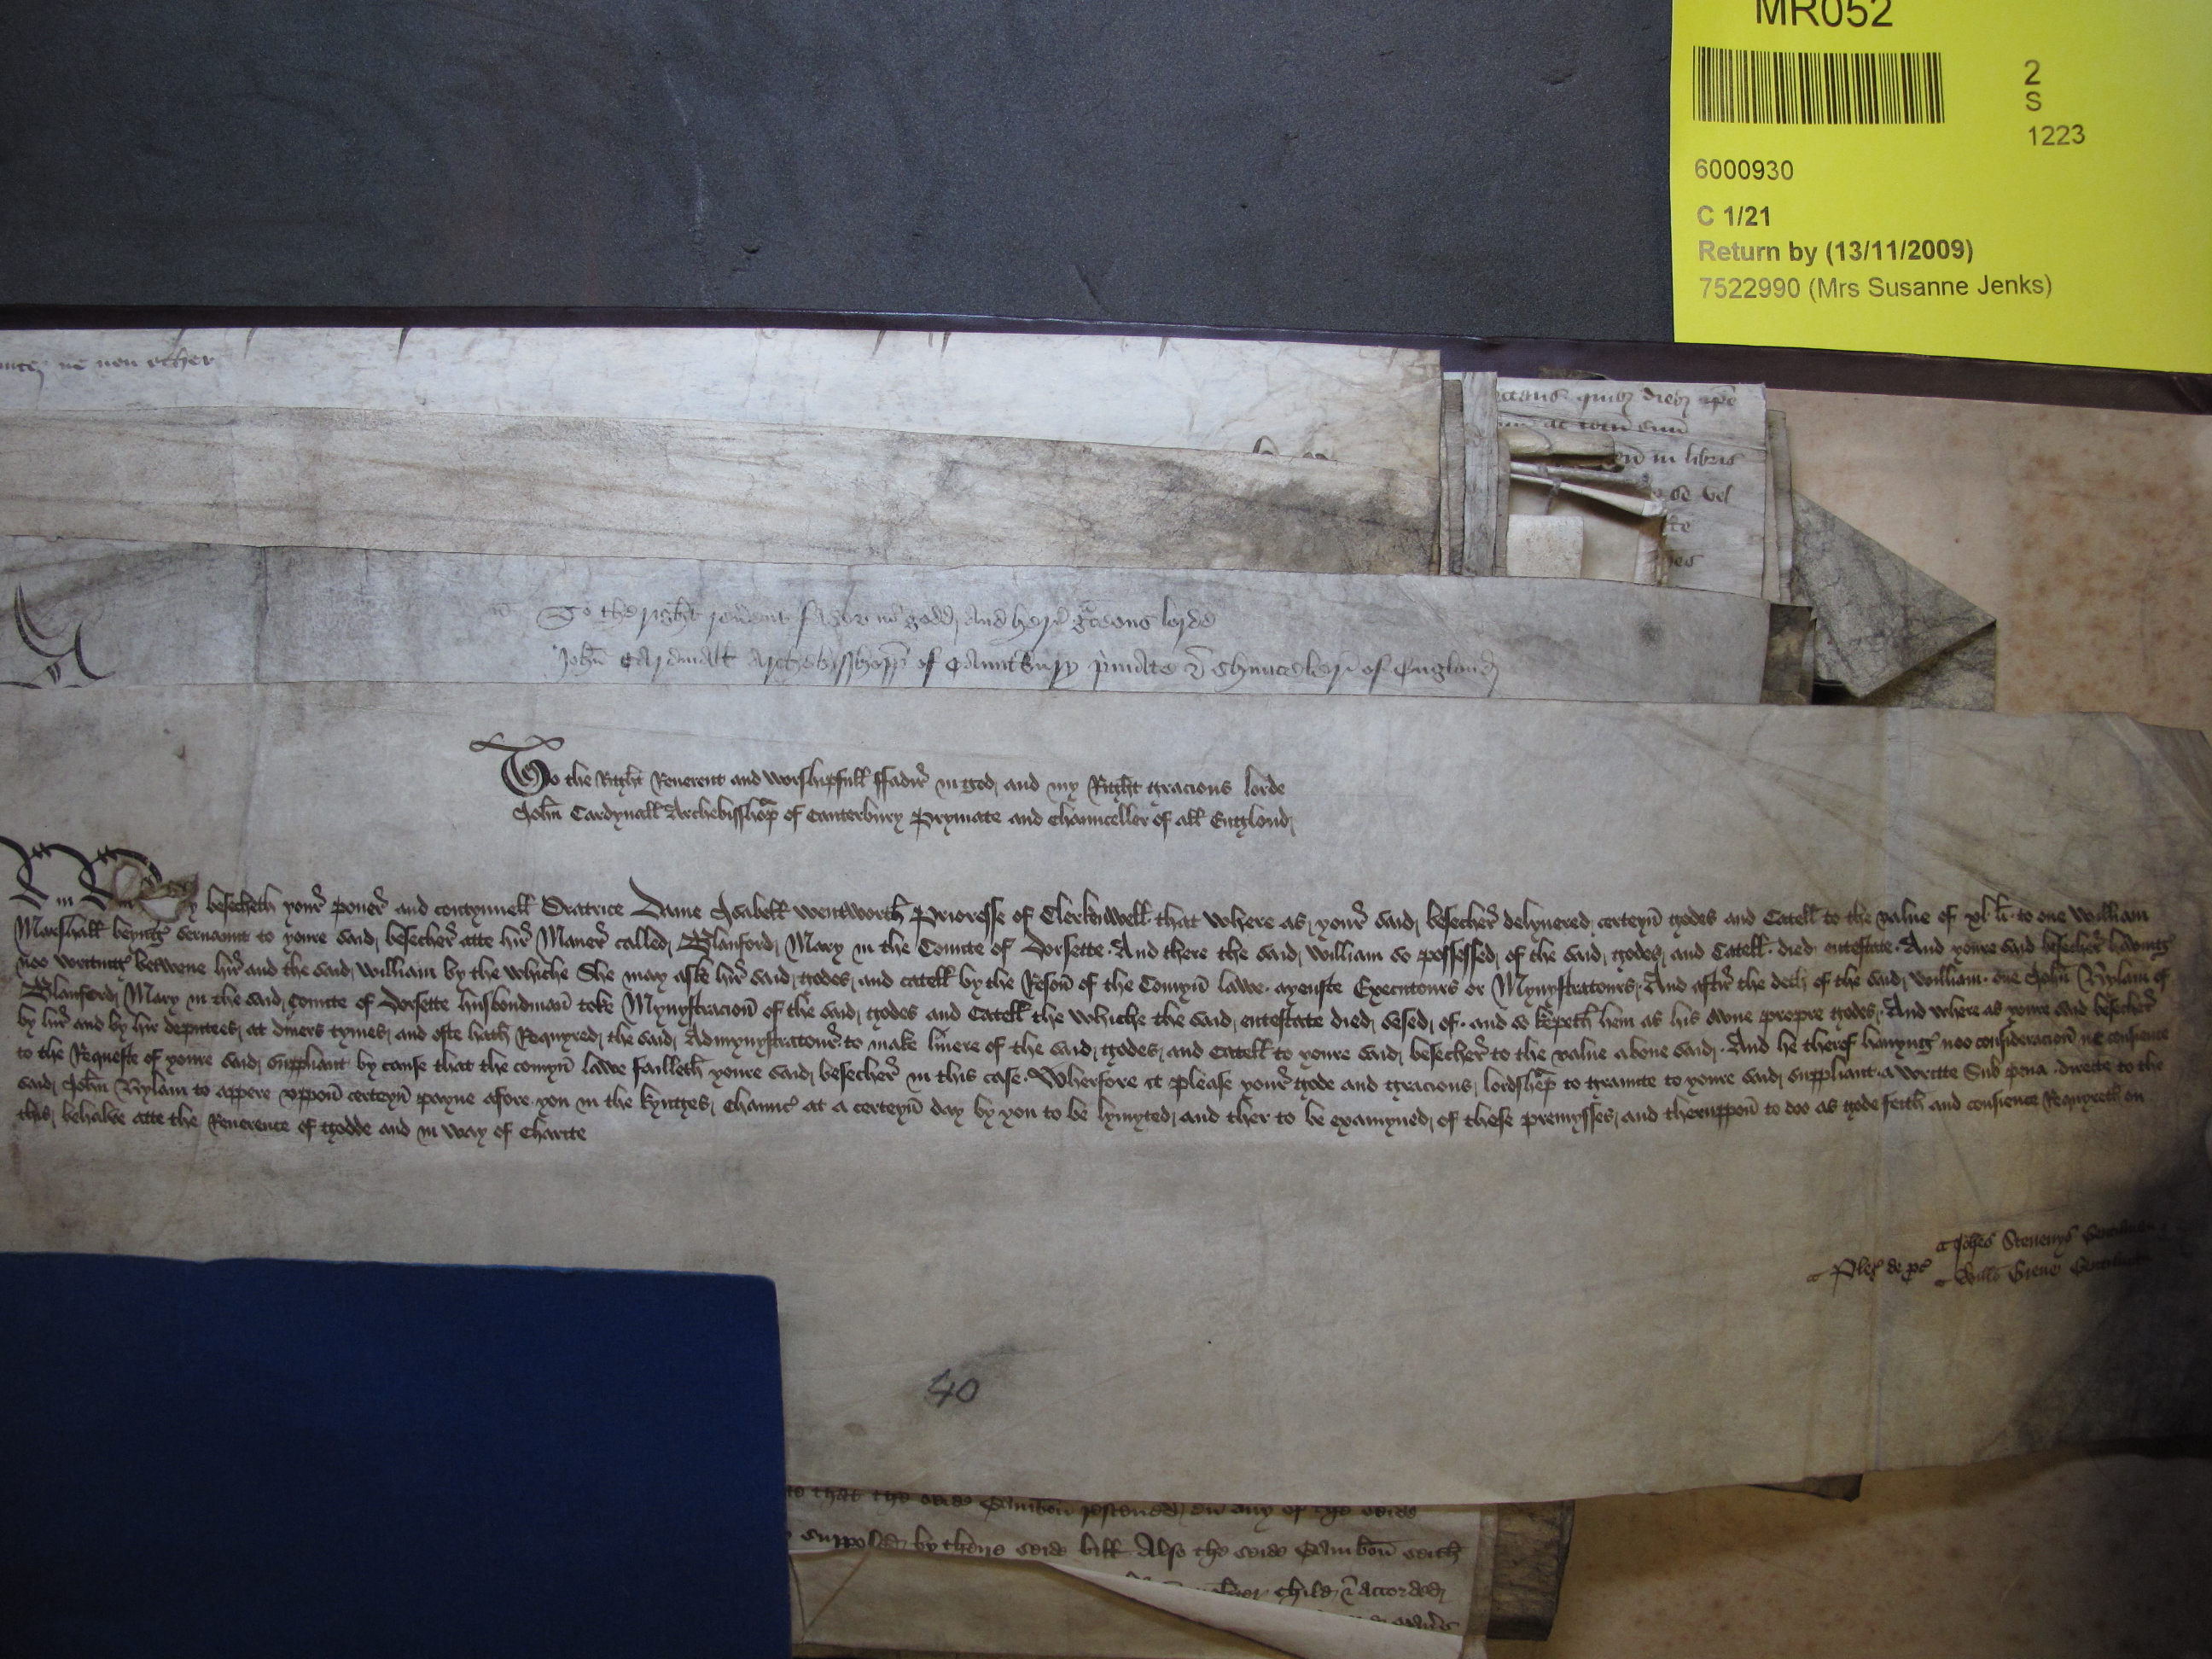 MR052
2
S
1223
6000930
C 1/21
Return by (13/11/2009)
7522990 (Mrs Susanne Jenks)
ne non other
in libris
se vel
To the right reu'ent fader in godd and her gracous lorde
John Cardinall Archebysshopp of Caunt'bury p'mate & Chaunceler of Englond
To the Right Reuerent and worshupfull ffadir in god and my Right gracious lorde
John Cardynall Archebisshop of Canterbury Prymate and Chaunceller of all Englond
besecheth your pouer and contynuell Oratrice Dame Isabell Wentworth Prioresse of Clerkenwell that where as your said besecher delyuered certeyn godes and Catell to the value of xl li. to one William
Marshall beyng seruaunt to youre said besecher atte hir Maner called Blanford Mary in the Comite of Dorsette. And there the said William so possessed of the said godes and Catell died entestate. And youre said besecher hauyng
noo writing betwene hir and the said William by the whiche She may aske hir said godes and catell by the Reson of the Comyn lawe ayenste Executours or Mynystratours. And aftir the deth of the said William one John Rylam of
Blanford Mary in the said Comite of Dorsette husbondman toke Mynystracion of the said godes and Catell the whiche the said entestate died sesed of. and so kepeth hem as his owne propre godes. And where as youre said besecher
by hir and by hir deputees at diuers tymes and ofte hath Requyred the said Admynystratour to make liuere of the said godes and Catell to youre said besecher to the value aboue said. And he therof hauyng noo consideracion ne consience
to the Requeste of youre said suppliant by cause that the comyn lawe failleth youre said besecher in this case. Wherfore it please your gode and gracious lordship to graunte to youre said suppliant a writte Sub pena directe to the
said John Rylam to appere uppon certeyn payne afore you in the kynges Chaunc' at a certeyn day by you to be lymyted and ther to be examyned of these premysses and theruppon to doo as gode feith and consience Requyreth on
this behalve atte the Reuerence of godde and in way of Charite
Joh'es Steuenys Gentilman
Pleg' de p's'
Will's Grene Gentilman
40
that the seide any of the seide
by there seide bill Also the seide seith
child & accorded